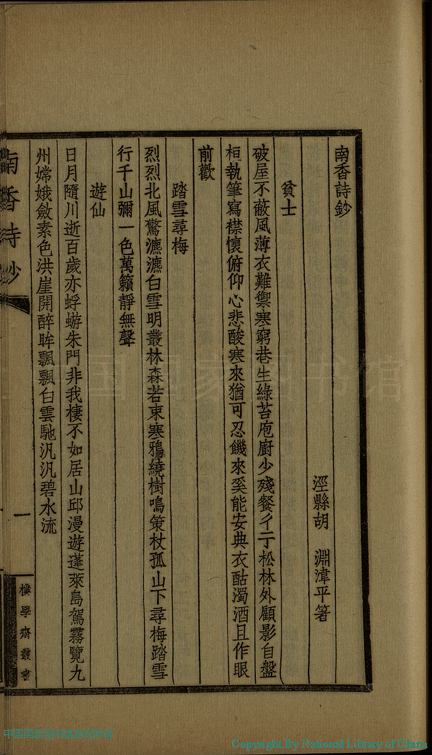 南香詩鈔
涇縣胡　淵漳平箸
貧士
破屋不蔽風薄衣難禦寒窮巷生綠苔庖廚少殘餐彳亍松林外顧影自盤
桓執筆寫襟懷俯仰心悲酸寒來猶可忍饑來奚能安典衣酤濁酒且作眼
前歡
踏雪尋梅
烈烈北風驚瀌瀌白雪明叢林森若束寒鴉繞樹鳴策杖孤山下尋梅踏雪
行千山彌一色萬籟靜無聲
遊仙
日月隨川逝百歲亦蜉蝣朱門非我棲不如居山邱漫遊蓬萊島駕霧覽九
州嫦娥斂素色洪崖開醉眸飄飄白雲馳汎汎碧水流
南香詩鈔
一
樸學齋叢書
Copyright By National Library of China